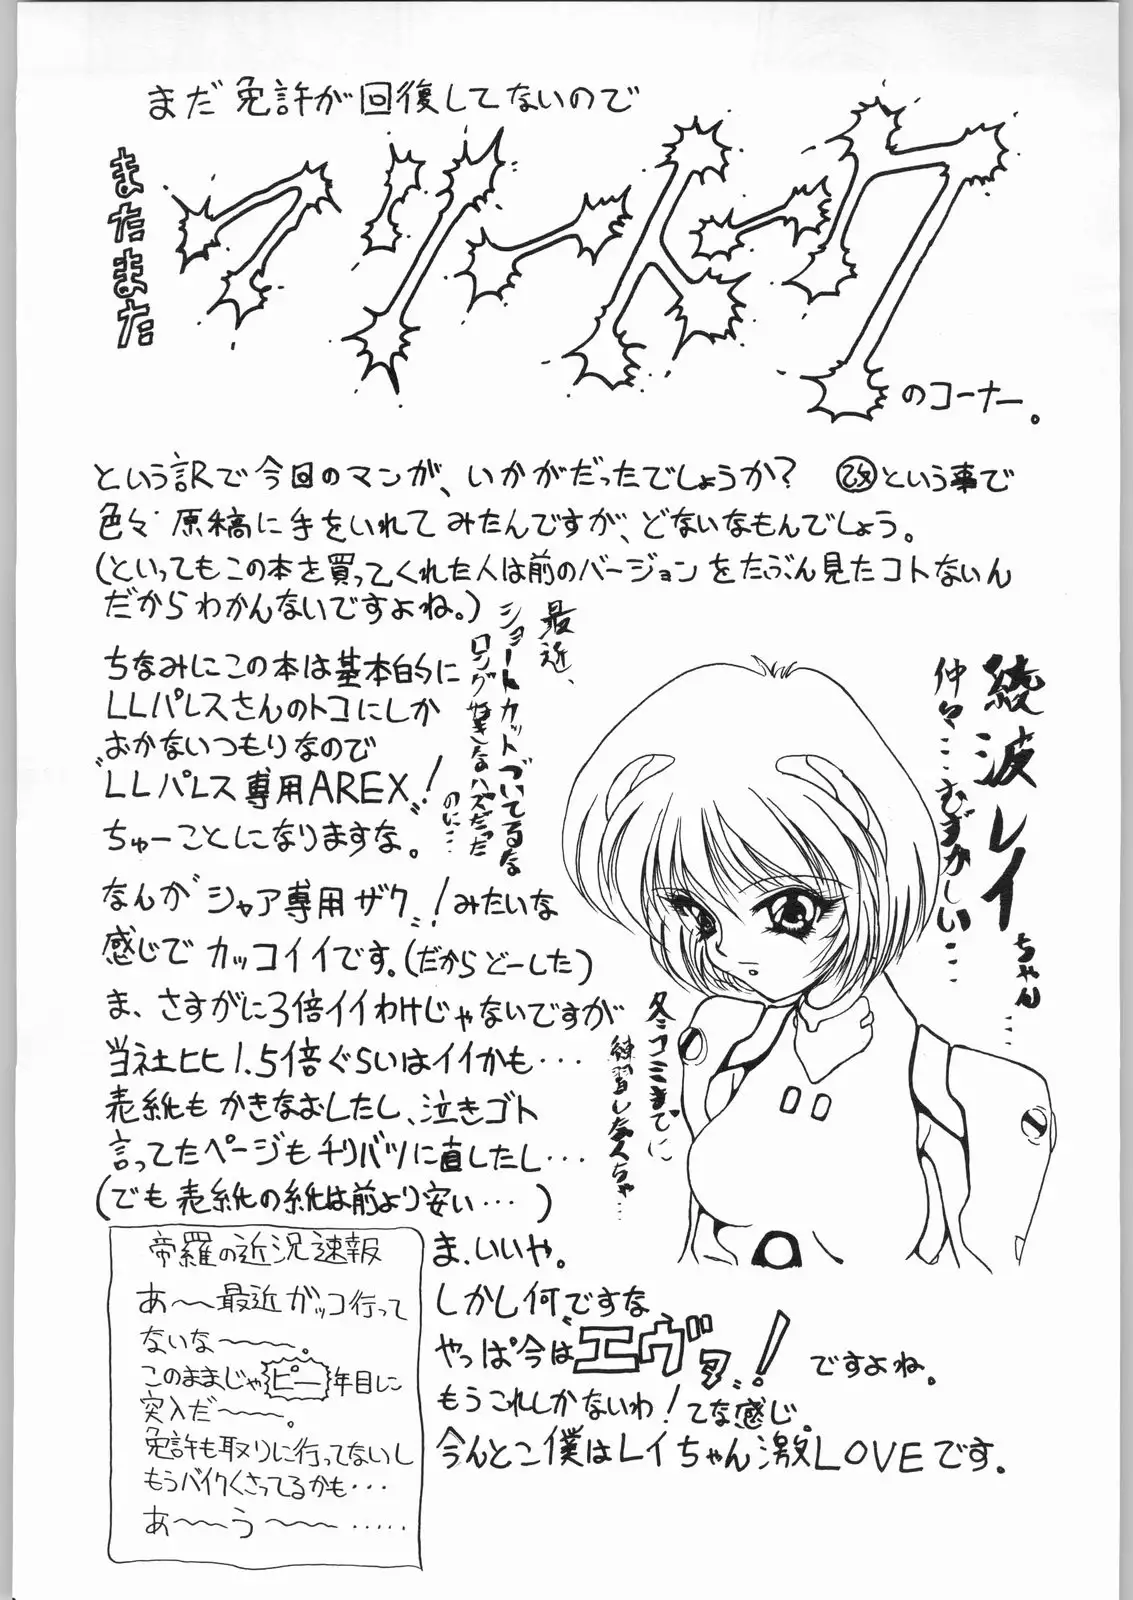 まだ免許が回復してないので
またまた
フリートーク
のコーナー。
という訳で今回のマンガ、いかがだったでしょうか? 改という事で
色々原稿に手をいれてみたんですが、どないなもんでしょう。
(といってもこの本を買ってくれた人は前のバージョンをたぶん見たコトないん
だからわかんないですよね。)
ちなみにこの本は基本的に
LLパレスさんのトコにしか
おかないつもりなので
〝LLパレス専用AREX〟!
ちゅーことになりますな。
なんか〝シャア専用ザク〟!みたいな
感じでカッコイイです。(だからどーした)
ま、さすがに3倍イイわけじゃないですが
当社ヒヒ1.5倍ぐらいはイイかも・・・
表紙もかきなおしたし、泣きゴト
言ってたページもチリバツに直したし・・・
(でも表紙の紙は前より安い・・・)
最近、
ショートカットづいてるな
ロング好きしなのハズだった
のに・・・
綾波レイちゃん・・・
仲々・・・むずかしい・・・
冬コミまでに
練習しなくちゃ・・・
ま、いいや。
しかし何ですな
やっぱ今は〝エヴァ〟!ですよね。
もうこれしかないわ!てな感じ。
今んとこ僕はレイちゃん激LOVEです。
帝羅の近況速報
あ〜〜最近ガッコ行って
ないな〜〜〜。
このままじゃピー年目に
突入だ〜〜〜。
免許も取りに行ってないし
もうバイクくさってるかも・・・
あ〜〜う〜〜〜・・・・・